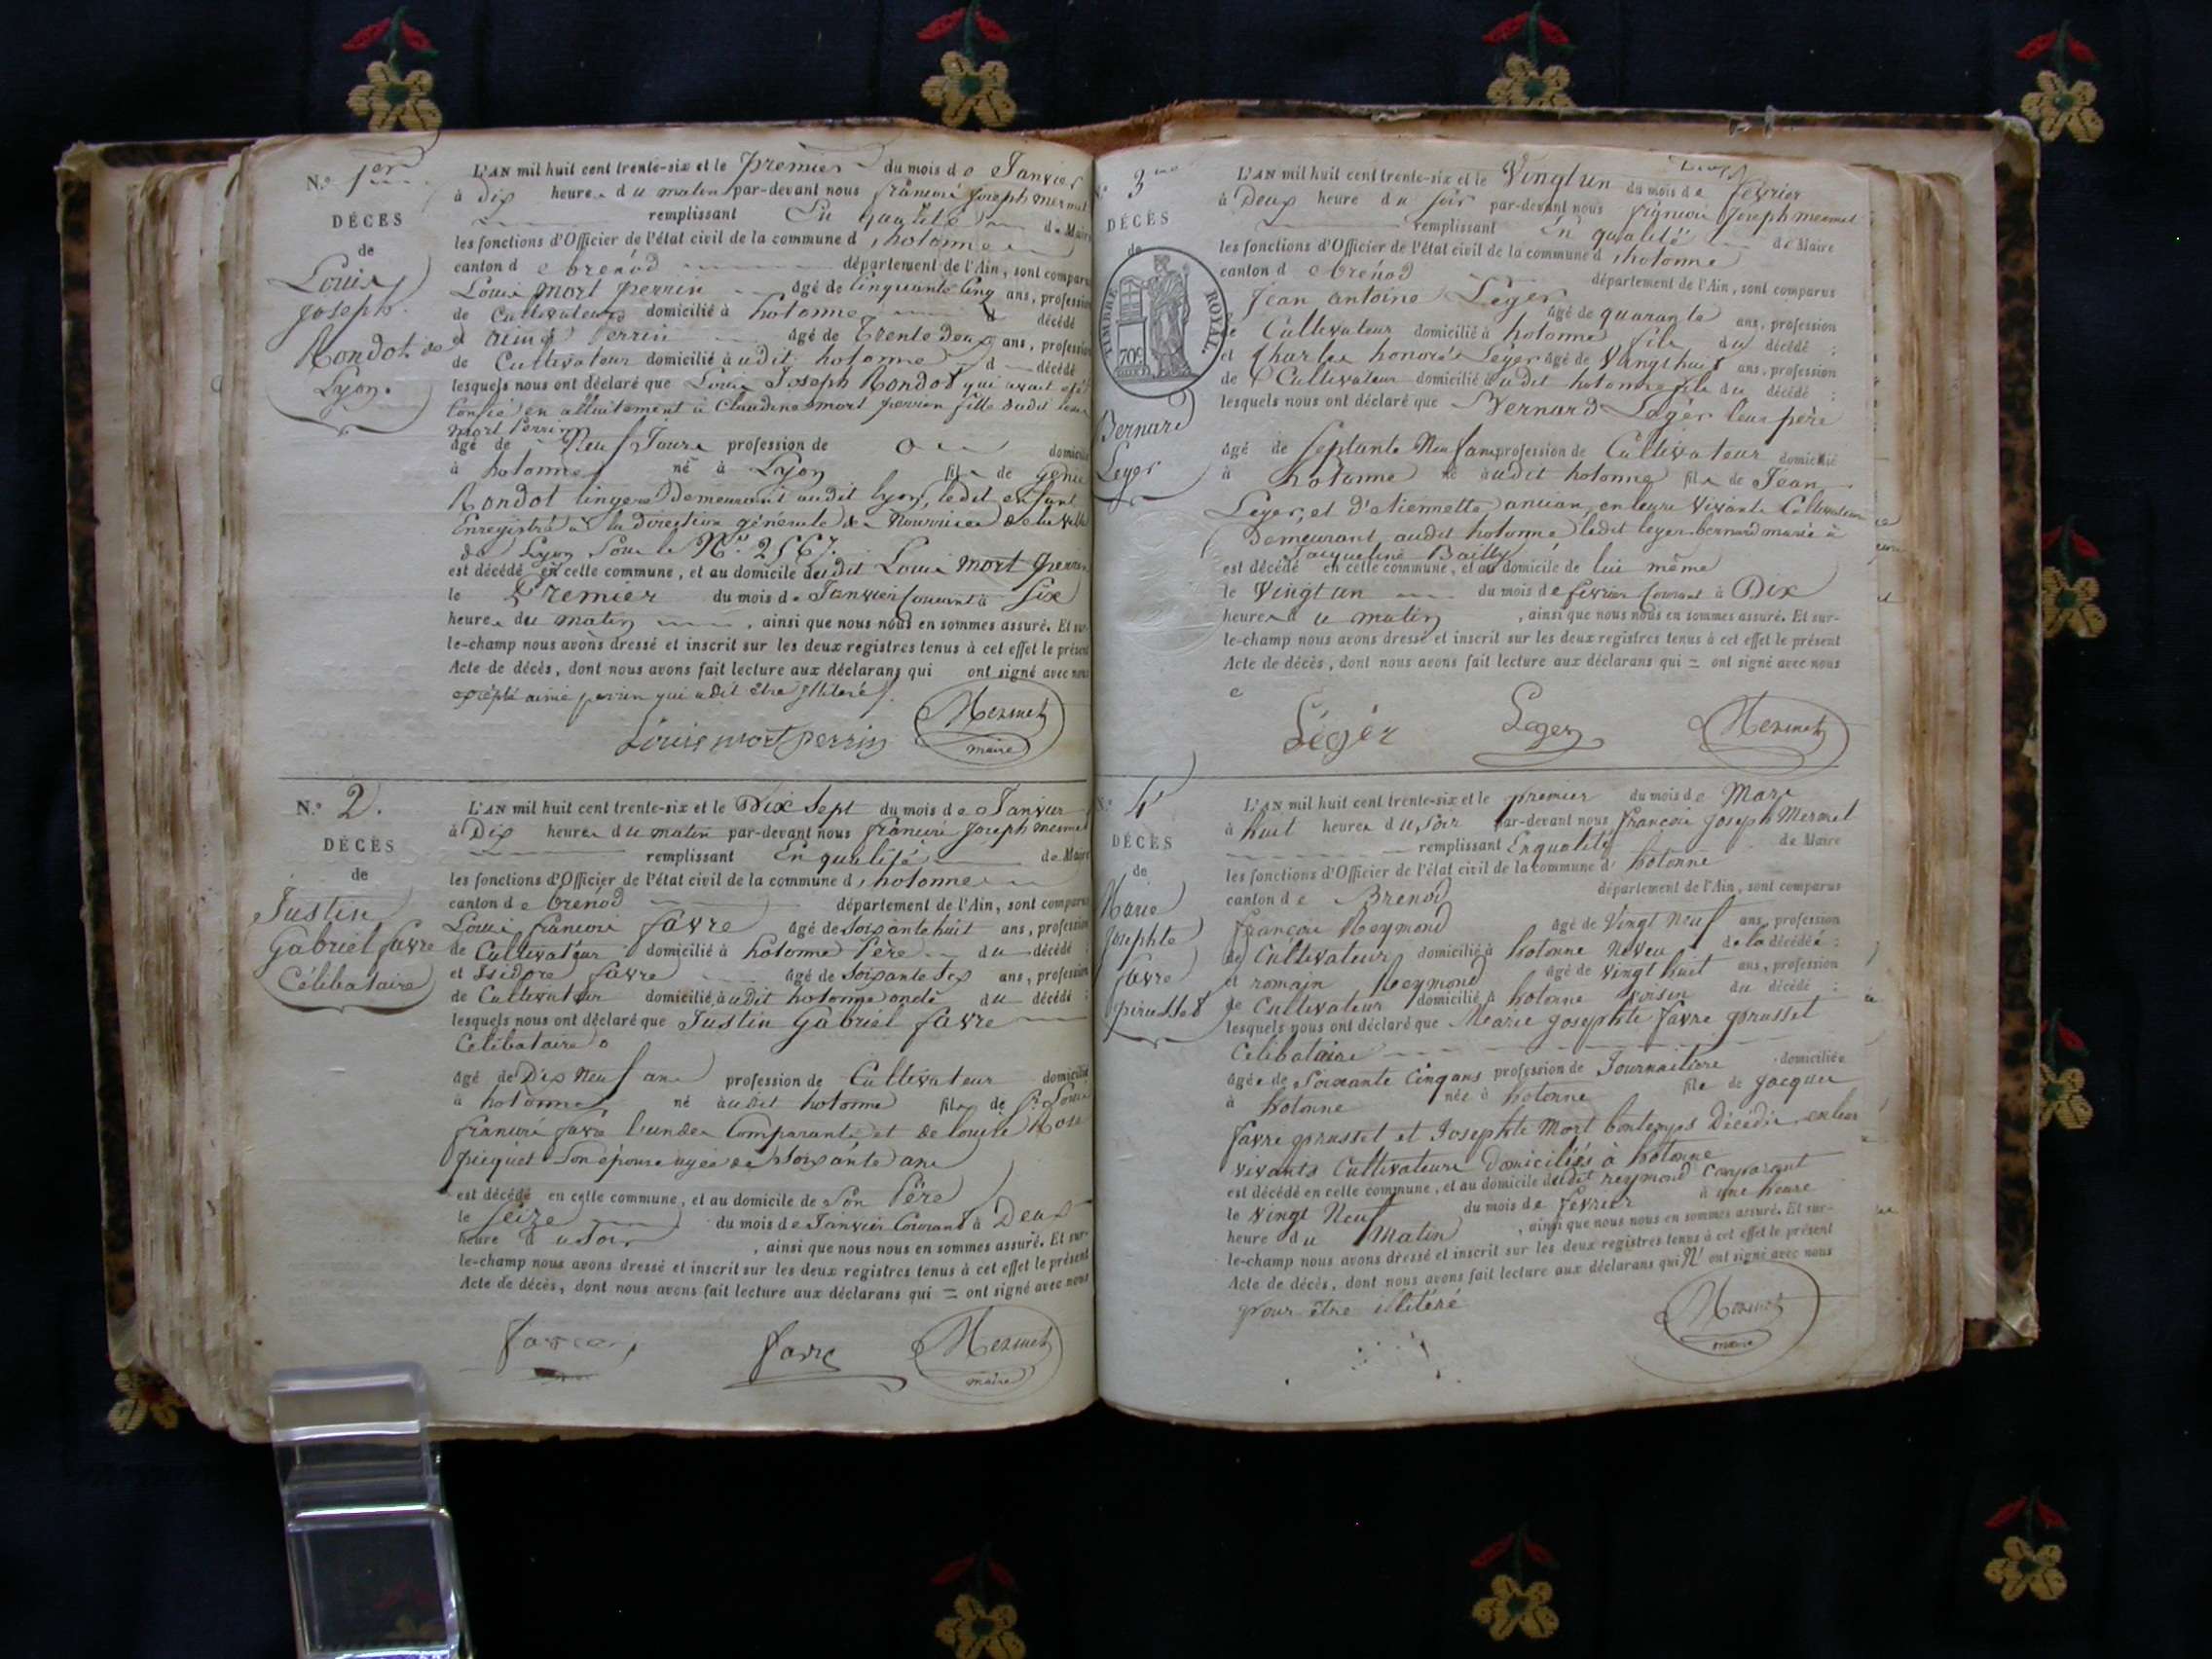 N.° 1er
DÉCÈS
de
Louis
Joseph
Rondot de
Lyon.
L'AN mil huit cent trente-six et le premier du mois de Janvier
à Dix heures du matin par-devant nous françois Joseph mermet
remplissant En qualité de Maire
les fonctions d'Officier de l'état civil de la commune d'hotonne
canton de brenod département de l'Ain, sont comparus
Louis mort perrin âgé de Cinquante Cinq ans, profession
de Cultivateur domicilié à hotonne d décédé
et aimé Perrin âgé de Trente Deux ans, profession
de Cultivateur domicilié audit hotonne d décédé
lesquels nous ont déclaré que Louis Joseph Rondot qui avait été
Confié en allaitement à Claudine mort perrin fille dudit Louis
mort Perrin
âgé de Neuf Jours profession de domicilié
à hotonne né à Lyon fils de
Rondot lingere Demeurant audit lyon, ledit enfant
Enregistré à la direction générale des Nourrices de la ville
de Lyon Sous le N° 2567.
est décédé en cette commune, et au domicile dudit Louis mort perrin
le Premier du mois de Janvier Courant à Six
heures du matin , ainsi que nous nous en sommes assuré. Et sur-
le-champ nous avons dressé et inscrit sur les deux registres tenus à cet effet le présent
Acte de décès, dont nous avons fait lecture aux déclarans qui ont signé avec nous
excepté aimé perrin qui a dit être illiteré
Louis mort perrin Mermet
maire
N.° 2.
DÉCÈS
de
Justin
Gabriel favre
Célibataire
L'AN mil huit cent trente-six et le Dix Sept du mois de Janvier
à Dix heures du matin par-devant nous françois Joseph mermet
remplissant En qualité de Maire
les fonctions d'Officier de l'état civil de la commune d'hotonne
canton de brenod département de l'Ain, sont comparus
Louis françois favre âgé de Soixante huit ans, profession
de Cultivateur domicilié à hotonne Père du décédé :
et Isidore favre âgé de Soixante Six ans, profession
de Cultivateur domicilié audit hotonne oncle du décédé :
lesquels nous ont déclaré que Justin Gabriel favre
Célibataire
âgé de Dix Neuf ans profession de Cultivateur domicilié
à hotonne né audit hotonne fils de Louis
françois favre l'un des Comparants et de Rose
picquet Son épouse agée de Soixante ans
est décédé en cette commune, et au domicile de Son Père
le Seize du mois de Janvier Courant à Deux
heure du Soir , ainsi que nous nous en sommes assuré. Et sur-
le-champ nous avons dressé et inscrit sur les deux registres tenus à cet effet le présent
Acte de décès, dont nous avons fait lecture aux déclarans qui = ont signé avec nous
favre Mermet
maire
N.° 3me
DÉCÈS
de
TIMBRE ROYAL.
70c
Bernard
Leger
L'AN mil huit cent trente-six et le Vingt un du mois de février
à Deux heure du soir par-devant nous françois Joseph mermet
remplissant En qualité de Maire
les fonctions d'Officier de l'état civil de la commune d'hotonne
canton de brenod département de l'Ain, sont comparus
Jean antoine Leger âgé de quarante ans, profession
de Cultivateur domicilié à hotonne fils du décédé :
et Charles honoré Leger âgé de Vingt huit ans, profession
de Cultivateur domicilié audit hotonne fils du décédé :
lesquels nous ont déclaré que Bernard Leger leur père
âgé de Septante Neuf ans profession de Cultivateur domicilié
à hotonne né audit hotonne fils de Jean
Leger, et d'etiennette ancian, en leurs Vivants Cultivateurs
Demeurant audit hotonne ledit leger bernard marié à
Jacqueline Bailly
est décédé en cette commune, et au domicile de lui même
le Vingt un du mois de fevrier Courant à Dix
heures du matin , ainsi que nous nous en sommes assuré. Et sur-
le-champ nous avons dressé et inscrit sur les deux registres tenus à cet effet le présent
Acte de décès, dont nous avons fait lecture aux déclarans qui = ont signé avec nous
Léger Leger Mermet
N.° 4
DÉCÈS
de
Marie
Josephte
favre
L'AN mil huit cent trente-six et le premier du mois de Mars
à huit heures du soir par-devant nous françois Joseph Mermet
remplissant En qualité de Maire
les fonctions d'Officier de l'état civil de la commune d'hotonne
canton de Brenod département de l'Ain, sont comparus
françois Reymond âgé de Vingt Neuf ans, profession
de Cultivateur domicilié à hotonne Neveu de la décédée :
et romain Reymond âgé de vingt huit ans, profession
de Cultivateur domicilié à hotonne voisin du décédé :
lesquels nous ont déclaré que Marie Josephte favre prusset
Celibataire
âgée de Soixante Cinq ans profession de Journaliere domiciliée
à hotonne née à hotonne fille de Jacques
favre prusset et Josephte Mort bontemps Décédés en leur
vivants Cultivateurs Domiciliés à hotonne
est décédé en cette commune, et au domicile dudit reymond Comparant
le vingt Neuf du mois de fevrier à une heure
heure du Matin , ainsi que nous nous en sommes assuré. Et sur-
le-champ nous avons dressé et inscrit sur les deux registres tenus à cet effet le présent
Acte de décès, dont nous avons fait lecture aux déclarans qui N' ont signé avec nous
pour être illitéré
Mermet
maire